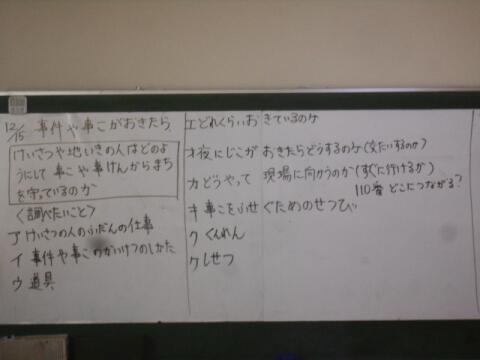 12/15 事件や事こがおきたら
けいさつや地いきの人はどのよ
うにして事こや事けんからまち
を守っているのか
<調べたいこと>
ア けいさつの人のふだんの仕事
イ 事件や事このかいけつのしかた
ウ 道具
エ どれくらいおきているのか
オ 夜にじこがおきたらどうするのか(交たいするのか)
カ どうやって現場に向かうのか(すぐに行けるか)
110番どこにつながる?
キ 事こをふせぐためのせつび
ク くんれん
ケ しせつ